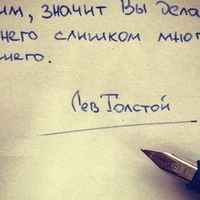 им, значит Вы дела
него слишком мног
шего.
Лев Толстой